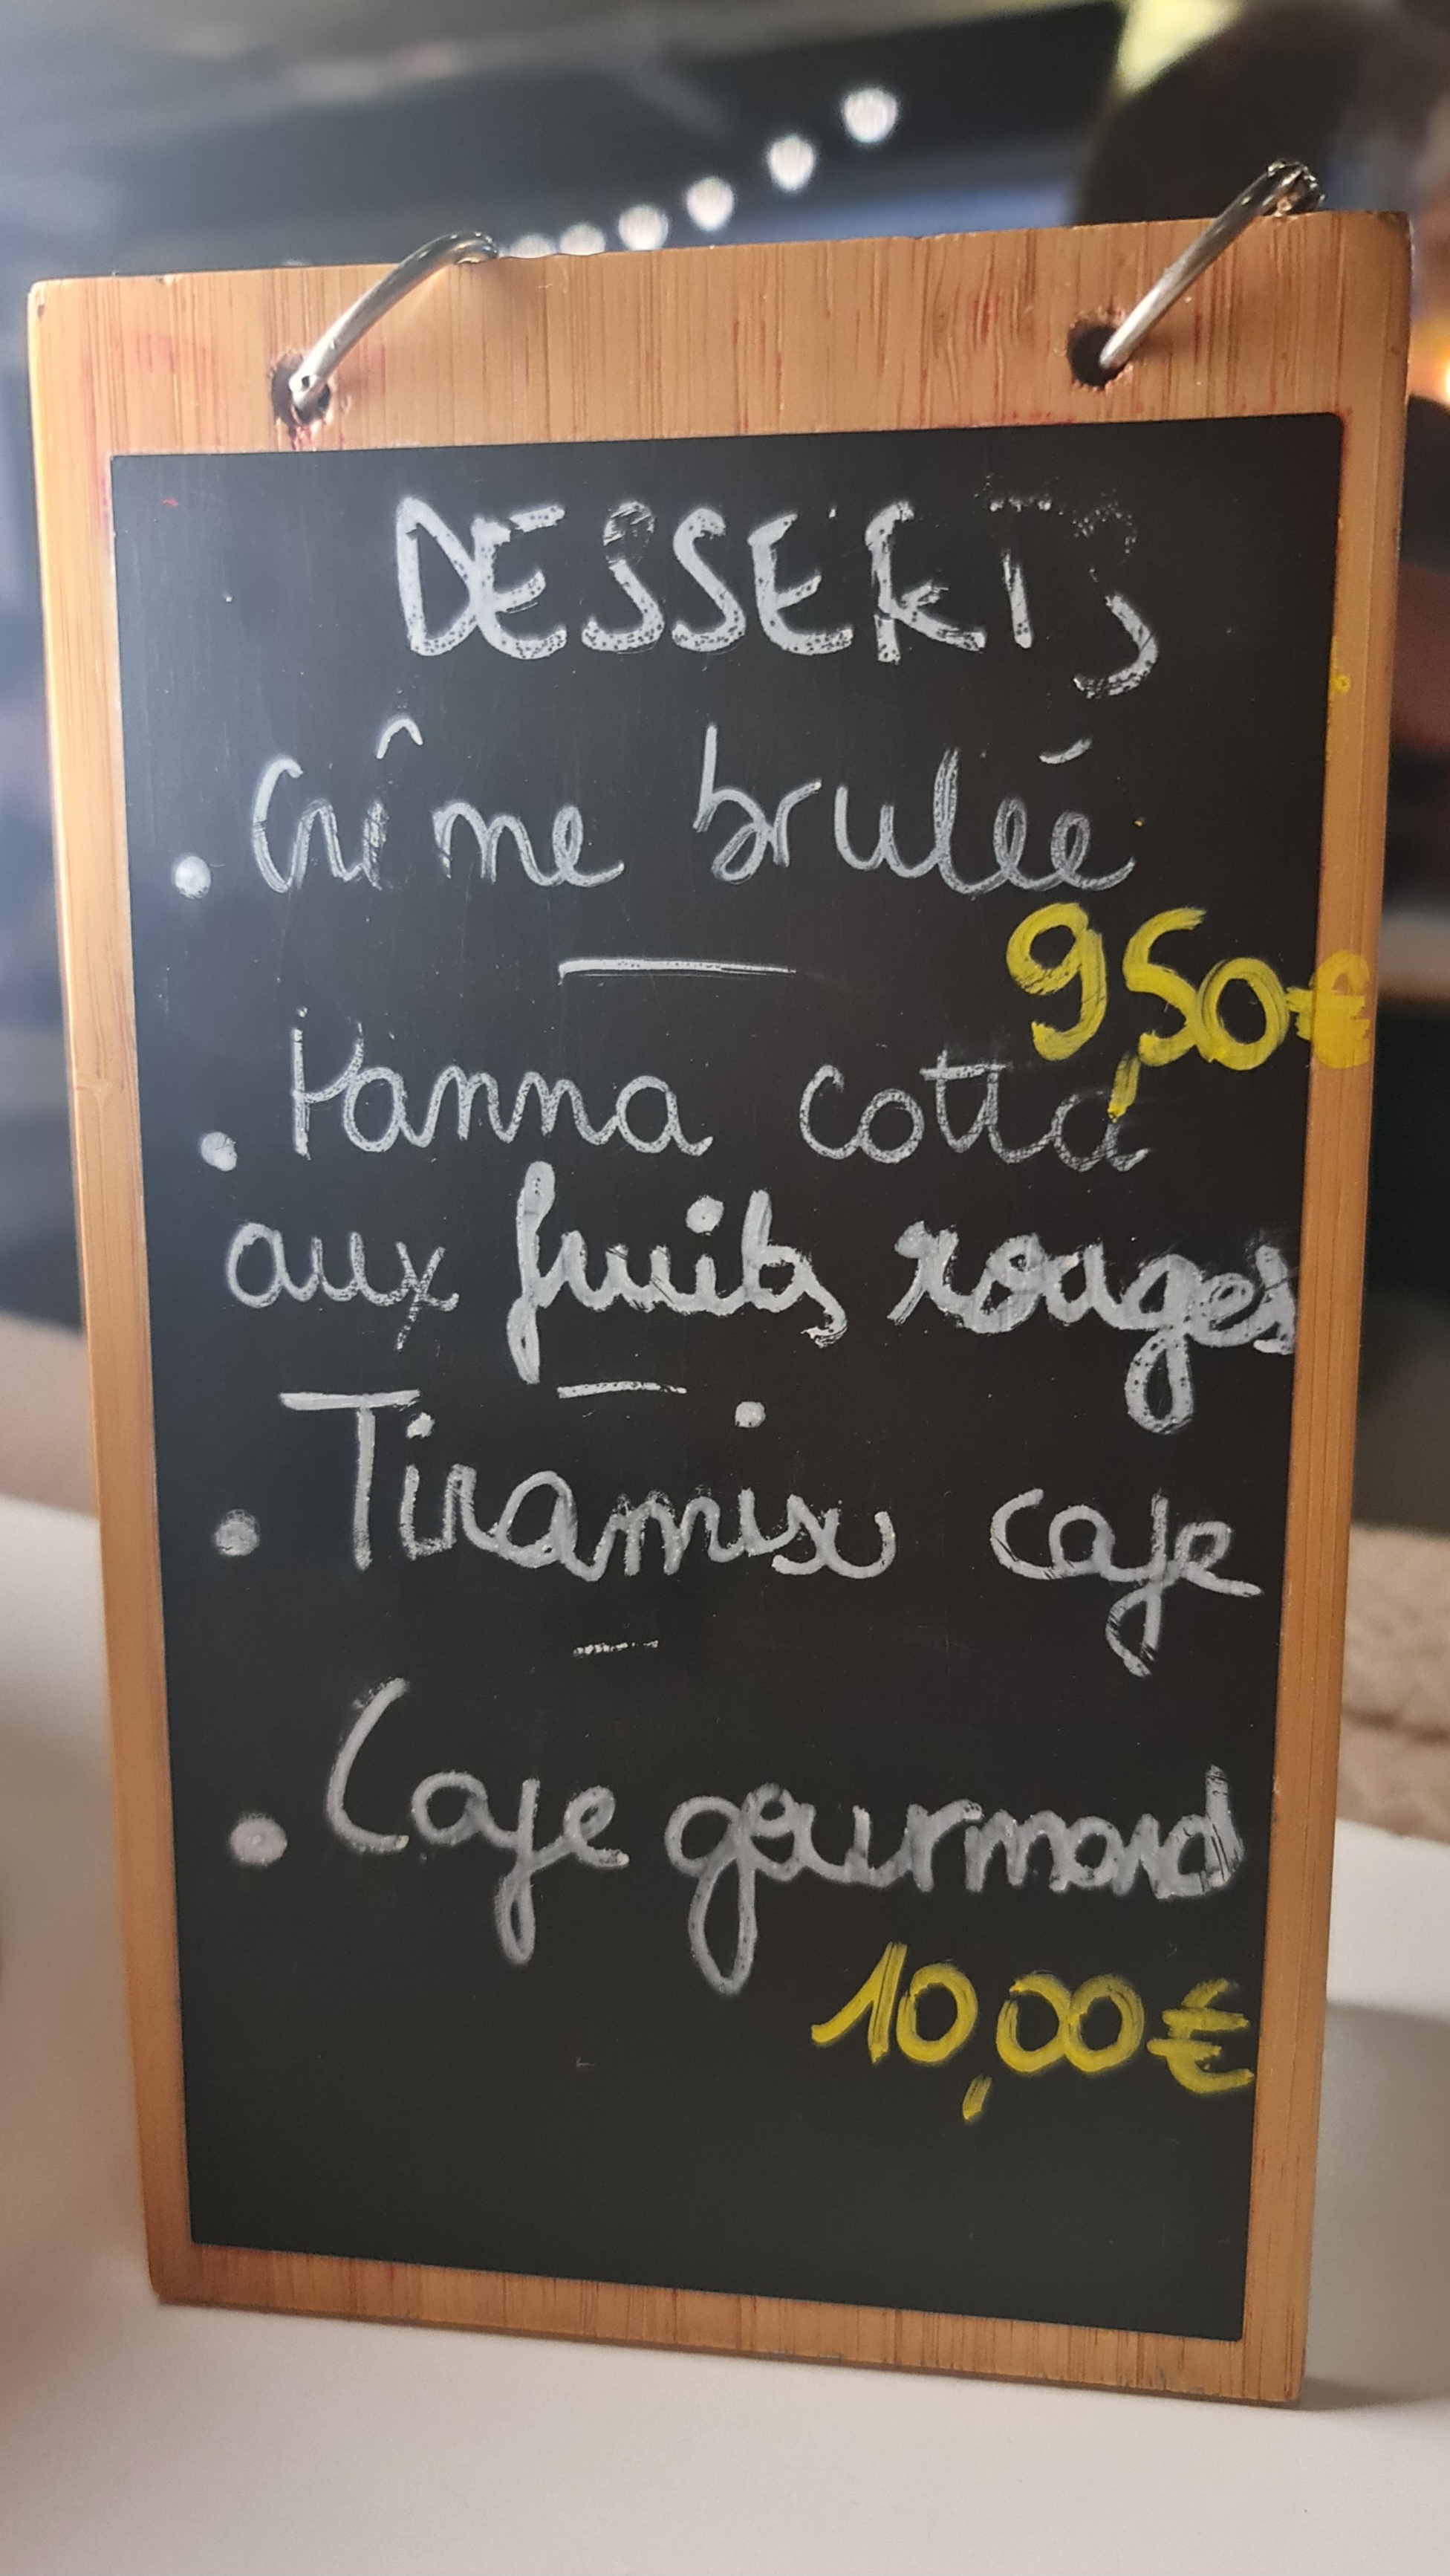 DESSERTS
. Crême brulée
9,50€
. Panna cotta
aux fruits rouges
. Tiramisu cafe
. Cafe gourmand
10,00€